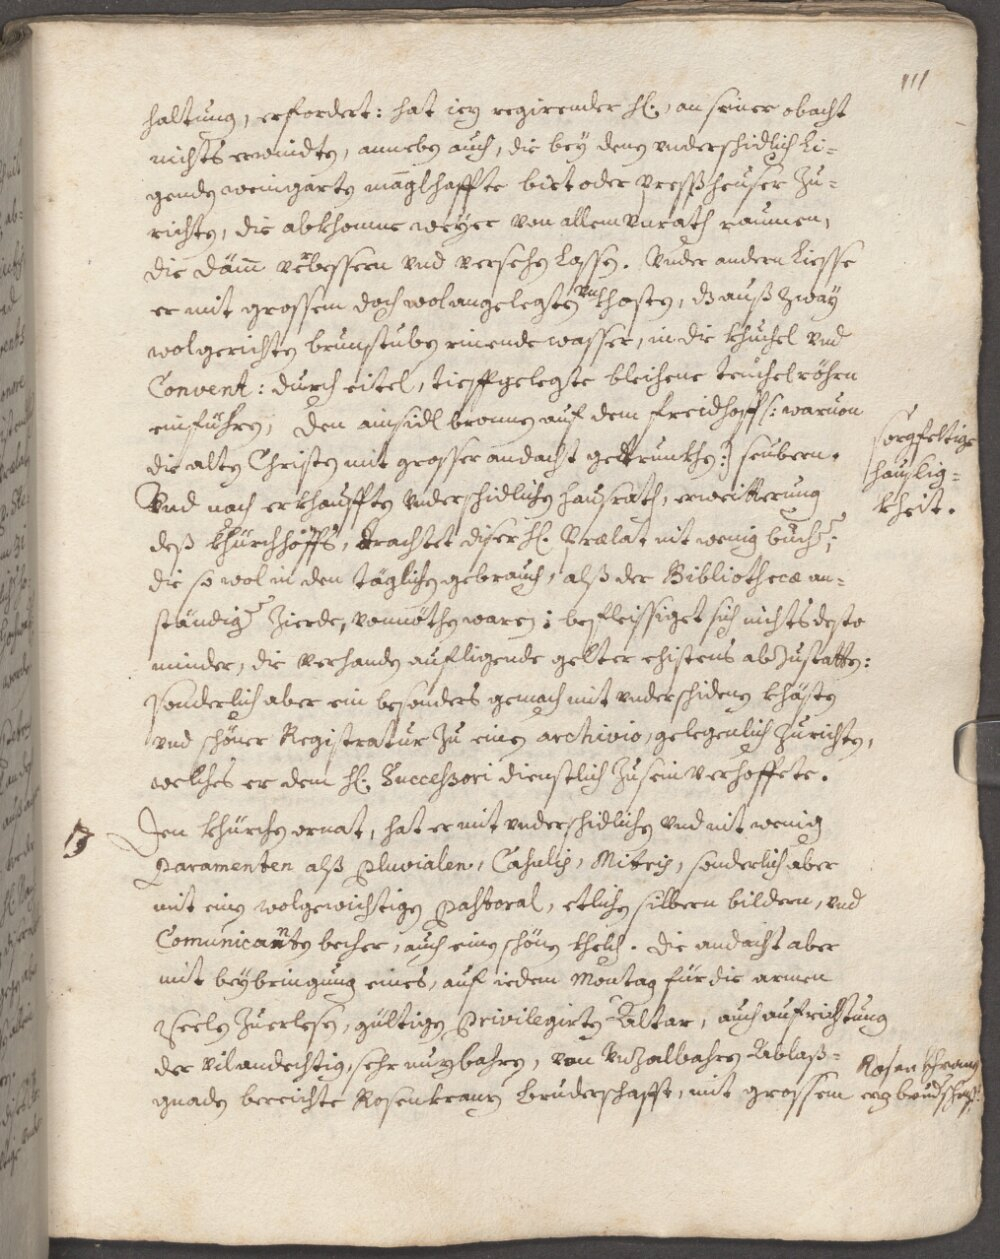 111
haltung, erfordert: hat iez regirender H:, an seiner obacht
nichts erwindten, annebs auch, die bey denen vnderschidlich li-
genden weingärten mäglhaffte biet oder Presßheuser Zu-
richten, die abkhomne weyer von allem vnrath raumen,
die dämm verbessern vnd versehen lassen. Vnder andern liesse
er mit grossem doch wolangelegten vncosten, dz auß zway
wolgerichten brunstuben rinende wasser, in die khuchel vnd
Convent: durch eitel, tieff gelegte bleihene teuchelröhrn
einführen, den ainsidl bronnen auf dem freidhoff (: waruon
die alten Christen mit grosser andacht getrunkhen :) seubern.
Vnd nach erkhaufften vnderschidlichen hausrath, erweitterung
deß khürchhoffs, trachtet diser H: Prælat nit wenig büecher,
die so wol in den täglichen gebrauch, alß der Bibliothecæ an-
ständiger Zierde, vonnöthen waren; befleissiget sich nichts desto
minder, die verhanden aufligende gelter ehistens abzustatten:
sonderlich aber ein besonders gemach mit vnderschidenen khästen
vnd schöner Registratur zu einem archivio, gelegenlich Zurichten,
welches er dem H: Successori dienstlich zu sein verhoffete.
sorgfeltige
hauslig-
kheit.
Den khürchen ornat, hat er mit vnderschidlichen vnd nit wenig
Paramenten alß Pluvialen, Casulis, Mitris, sonderlich aber
mit einem wolgewichtigen Pastoral, etlichen silbern bildern, vnd
Comunicanten becher, auch einem schönen khelch. Die andacht aber
mit beybringung eines, auf iedem Montag für die armen
Seelen Zuerlesen, gültigen Privilegirten Altar, auch aufrichtung
der vilandechtig, sehr nuzbahren, von vnzalbahren Ablaß-
gnaden bereichte Rosenkranz Bruderschafft, mit grossem
Rosen khranz
erz brudschafft